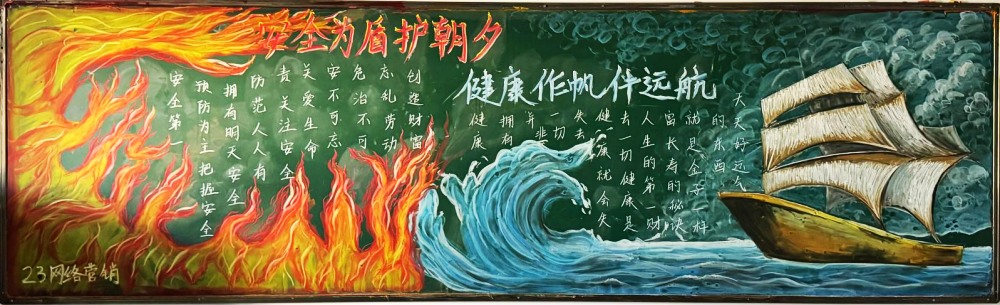 安全为盾护朝夕
创造财富
忘乱劳动
危治不可
安不可忘
关爱生命
责关注安全
防范人人有
拥有明天安全
预防为主把握安全
安全第一
健康作帆伴远航
天天好运气
的东西
就是金子一样
富长寿的秘诀
人生的第一财
去一切健康是
健康就会失
失去
一切
并非
拥有
健康
23网络营销